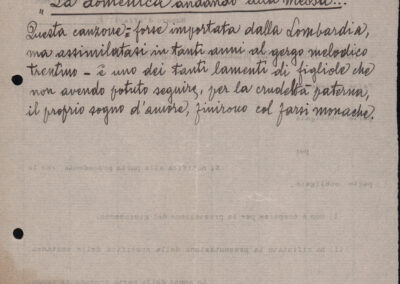 "La domenica andando alla messa...
Questa canzone - forse importata dalla Lombardia,
ma assimilatasi in tanti anni al gergo melodico
trentino - è uno dei tanti lamenti di figliole che
non avendo potuto seguire, per la crudeltà paterna,
il proprio sogno d'amore, finirono col farsi monache.